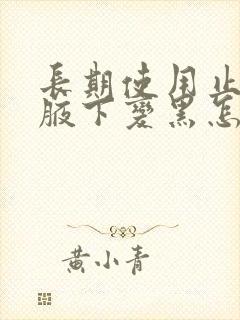 長期使用止
腋下變黑怎
黃小青